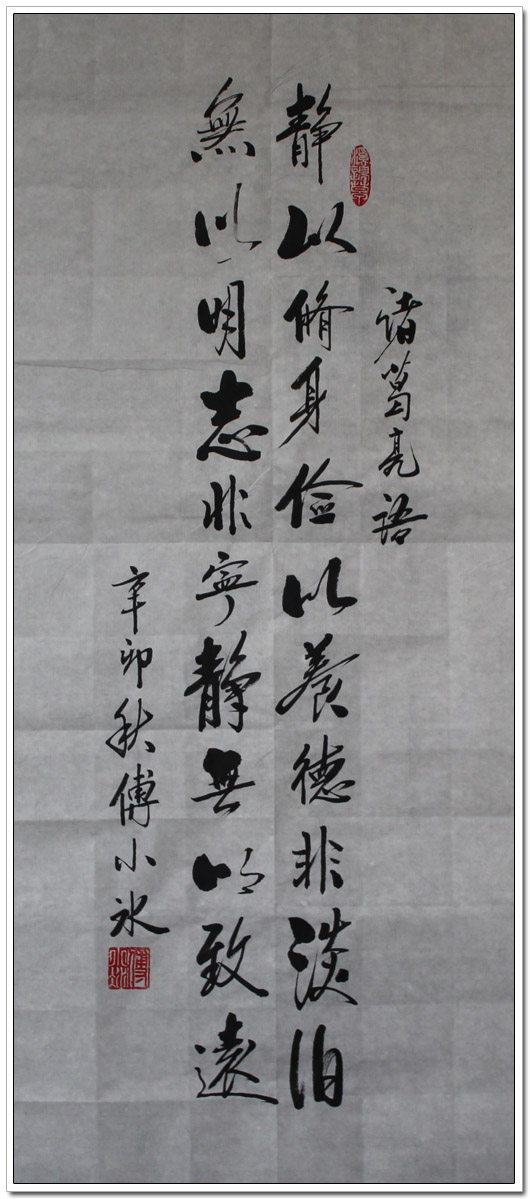 诸葛亮语
静以脩身俭以養德非淡泊
無以明志非宁静無以致遠
辛卯秋傅小冰